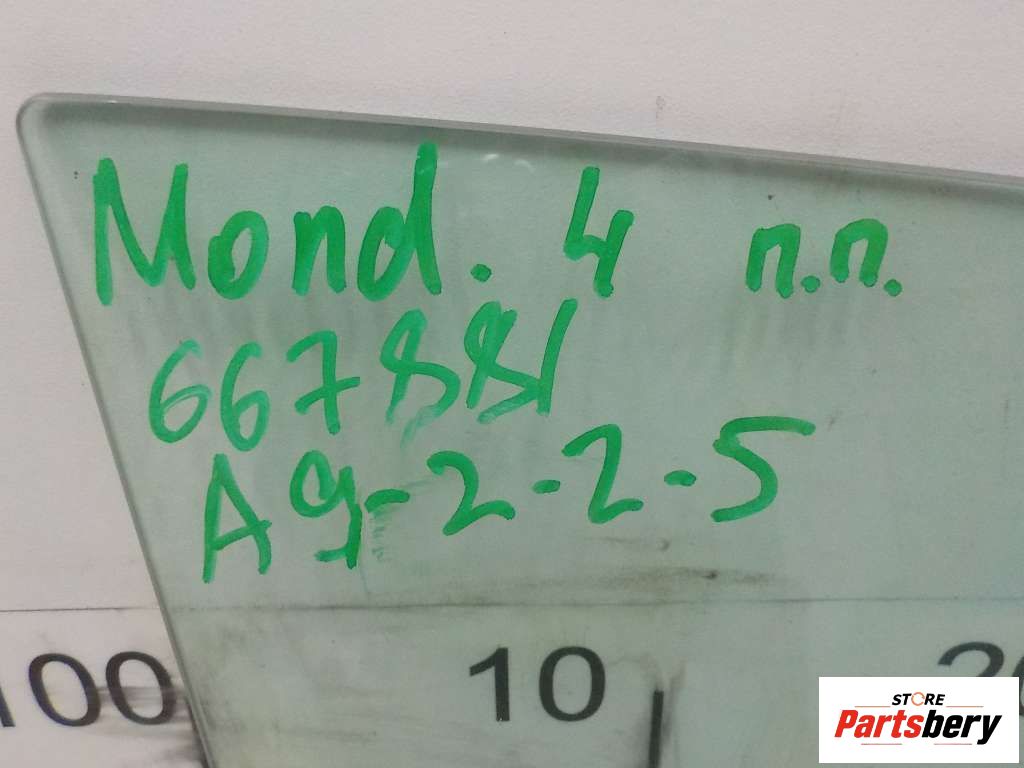 Mond. 4 п.п.
667881
A9-2-2-5
100 10 20
STORE
Partsbery